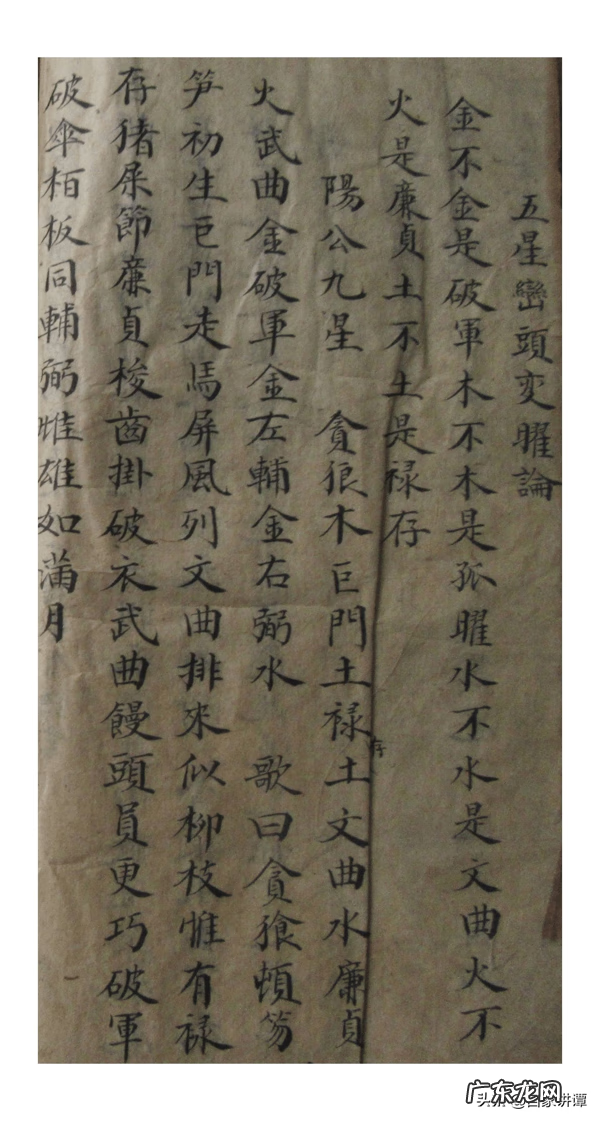 五星巒頭变曜論
金不金是破軍木不木是孤曜水不水是文曲火不
火是廉貞土不土是禄存
陽公九星 貪狼木巨門土禄存土文曲水廉貞
火武曲金破軍金左輔金右弼水 歌曰貪狼頓笏
笋初生巨門走馬屏風列文曲排來似柳枝惟有禄
存猪屎節廉貞梭齒掛破衣武曲饅頭員更巧破軍
破傘栢板同輔弼雌雄如滿月
广东龙网
头条 @百家讲谭